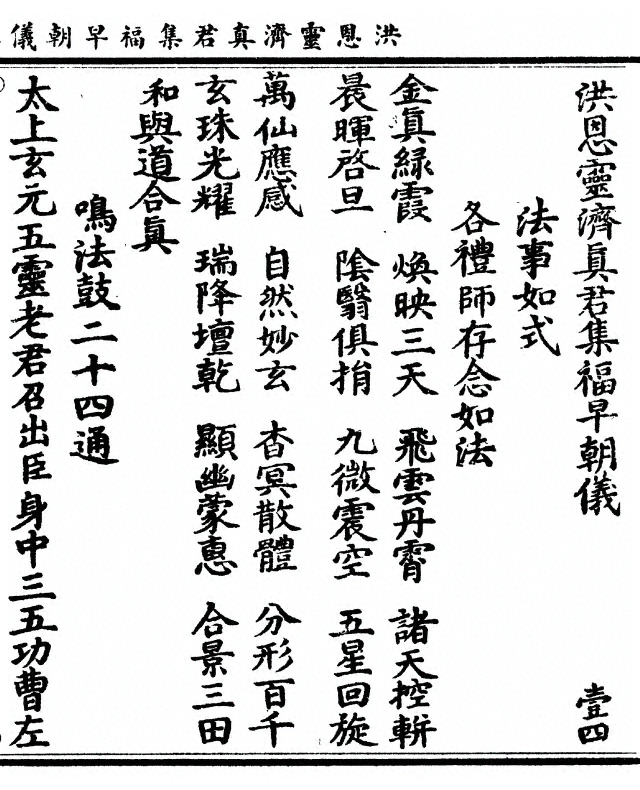 洪恩靈濟真君集福早朝儀
洪恩靈濟真君集福早朝儀 壹四
法事如式
各禮師存念如法
金真綠霞 煥映三天 飛雲丹霄 諸天控輧
晨暉啓旦 陰翳俱捐 九微震空 五星回旋
萬仙應感 自然妙玄 杳冥散體 分形百千
玄珠光耀 瑞降壇乾 顯幽蒙惠 合景三田
和與道合真
鳴法鼓二十四通
太上玄元五靈老君召出臣身中三五功曹左